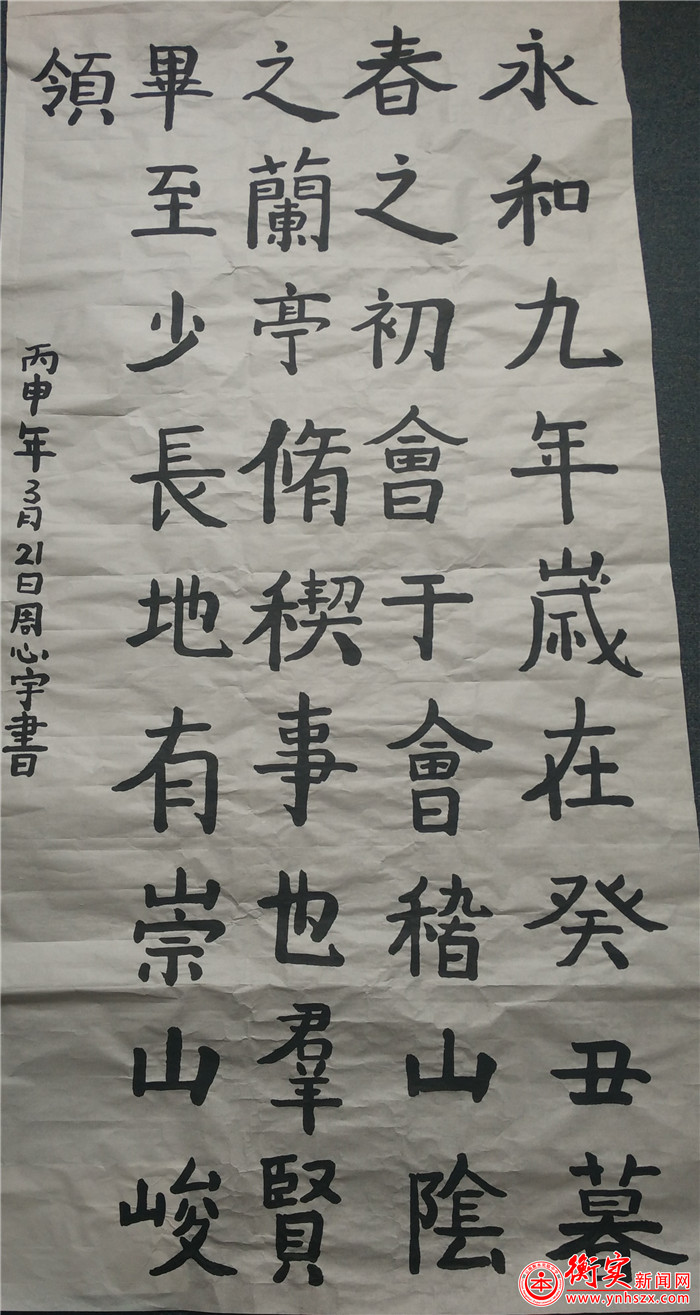 永和九年嵗在癸丑暮
春之初會于會稽山陰
之蘭亭脩稧事也羣賢
畢至少長地有崇山峻
領
丙申年3月21日周心宇書
衡实新闻网
www.ynhszx.com